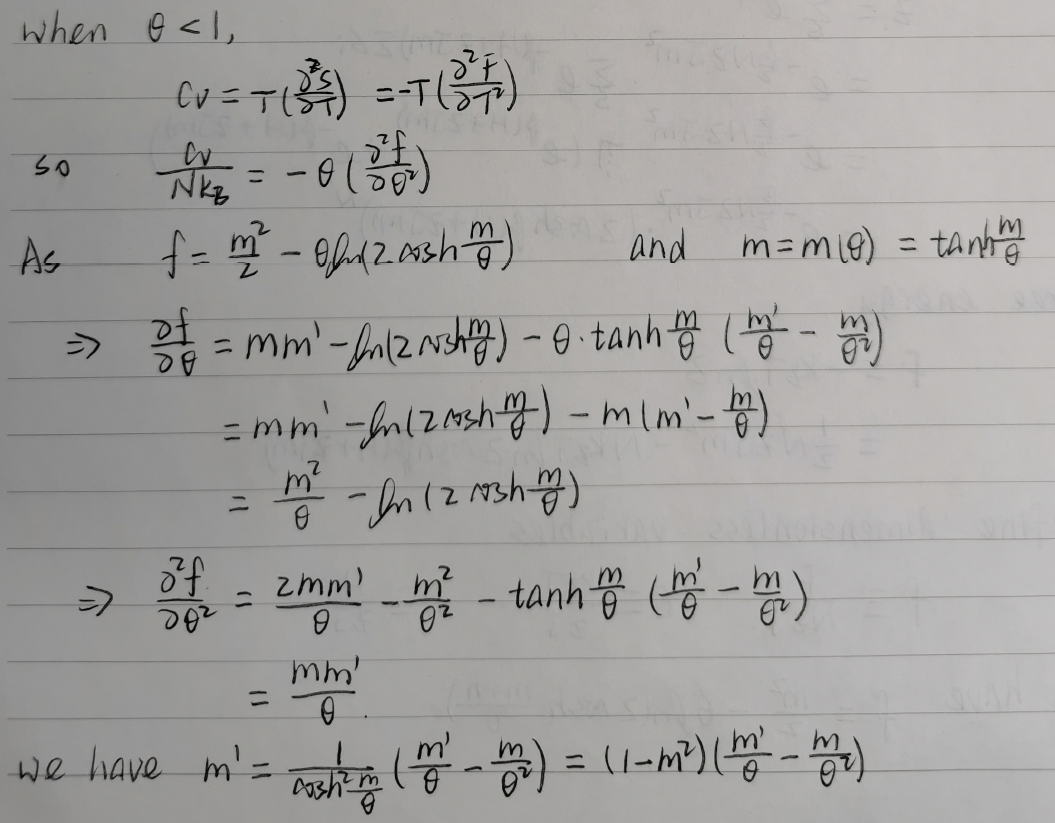 when θ < 1,
Cv = T(∂²S/∂T) = -T(∂²F/∂T²)
so Cv/NkB = -θ(∂²f/∂θ²)
As f = m²/2 - θln(2cosh m/θ) and m = m(θ) = tanh m/θ
⇒ ∂f/∂θ = mm' - ln(2cosh m/θ) - θ·tanh m/θ (m'/θ - m/θ²)
= mm' - ln(2cosh m/θ) - m(m' - m/θ)
= m²/θ - ln(2cosh m/θ)
⇒ ∂²f/∂θ² = 2mm'/θ - m²/θ² - tanh m/θ (m'/θ - m/θ²)
= mm'/θ.
we have m' = 1/cosh² m/θ (m'/θ - m/θ²) = (1-m²)(m'/θ - m/θ²)